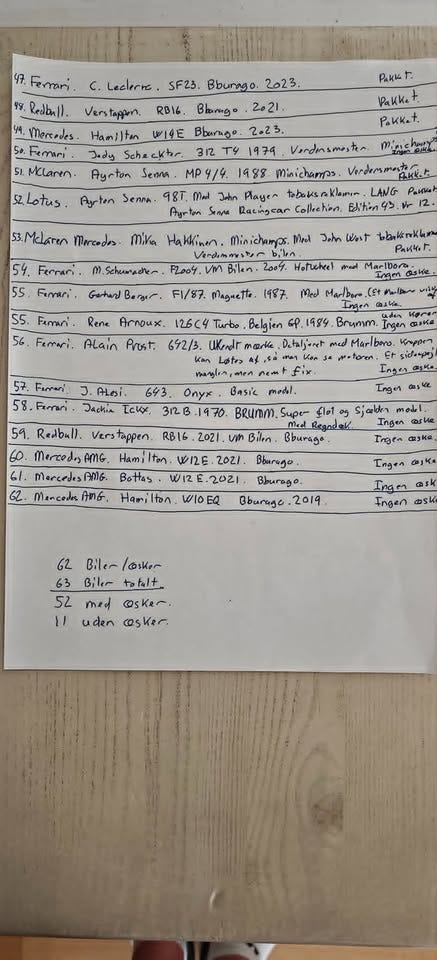 47. Ferrari. C. Leclerc. SF23. Bburago. 2023. Pakket.
48. Redbull. Verstappen. RB16. Bburago. 2021. Pakket.
49. Mercedes. Hamilton W14E Bburago. 2023. Pakket.
50. Ferrari. Jody Scheckter. 312 T4 1979. Verdensmester. Minichamps Ingen æske.
51. McLaren. Ayrton Senna. MP4/4. 1988 Minichamps. Verdensmester Pakket.
52. Lotus. Ayrton Senna. 98T. Med John Player tobaksreklamer. LANG Pakket
Ayrton Senna Racingcar Collection. Edition 43. Nr 12.
53. McLaren Mercedes. Mika Hakkinen. Minichamps. Med John West tobaksreklame
Verdensmester bilen. Pakket.
54. Ferrari. M. Schumacher. F2004. VM Bilen. 2004. Hotwheel med Marlboro.
Ingen æske.
55. Ferrari. Gerhard Berger. F1/87. 1987. Med Marlboro. (Et
Ingen æske.
55. Ferrari. Rene Arnoux. 126C4 Turbo. Belgien GP. 1984. Brumm. uden Kører Ingen æske
56. Ferrari. Alain Prost. 642/3. UKendt mærke. Detaljeret med Marlboro. Kroppet
Kan Løftes af, så man Kan se motoren. Et sidespejl
mangler, men nemt fix. Ingen æske
57. Ferrari. J. Alesi. 643. Onyx. Basic model. Ingen æske
58. Ferrari. Jackie Ickx. 312B. 1970. BRUMM. Super flot og Sjælden model.
Med Regndæk. Ingen æske
59. Redbull. Verstappen. RB16. 2021. VM Bilen. Bburago. Ingen æske.
60. Mercedes AMG. Hamilton. W12E. 2021. Bburago. Ingen æske
61. Mercedes AMG. Bottas. W12E. 2021. Bburago. Ingen æsk
62. Mercedes AMG. Hamilton. W10 EQ Bburago. 2019. Ingen æsk
62 Biler/æsker
63 Biler totalt
52 med æsker.
11 uden æsker.